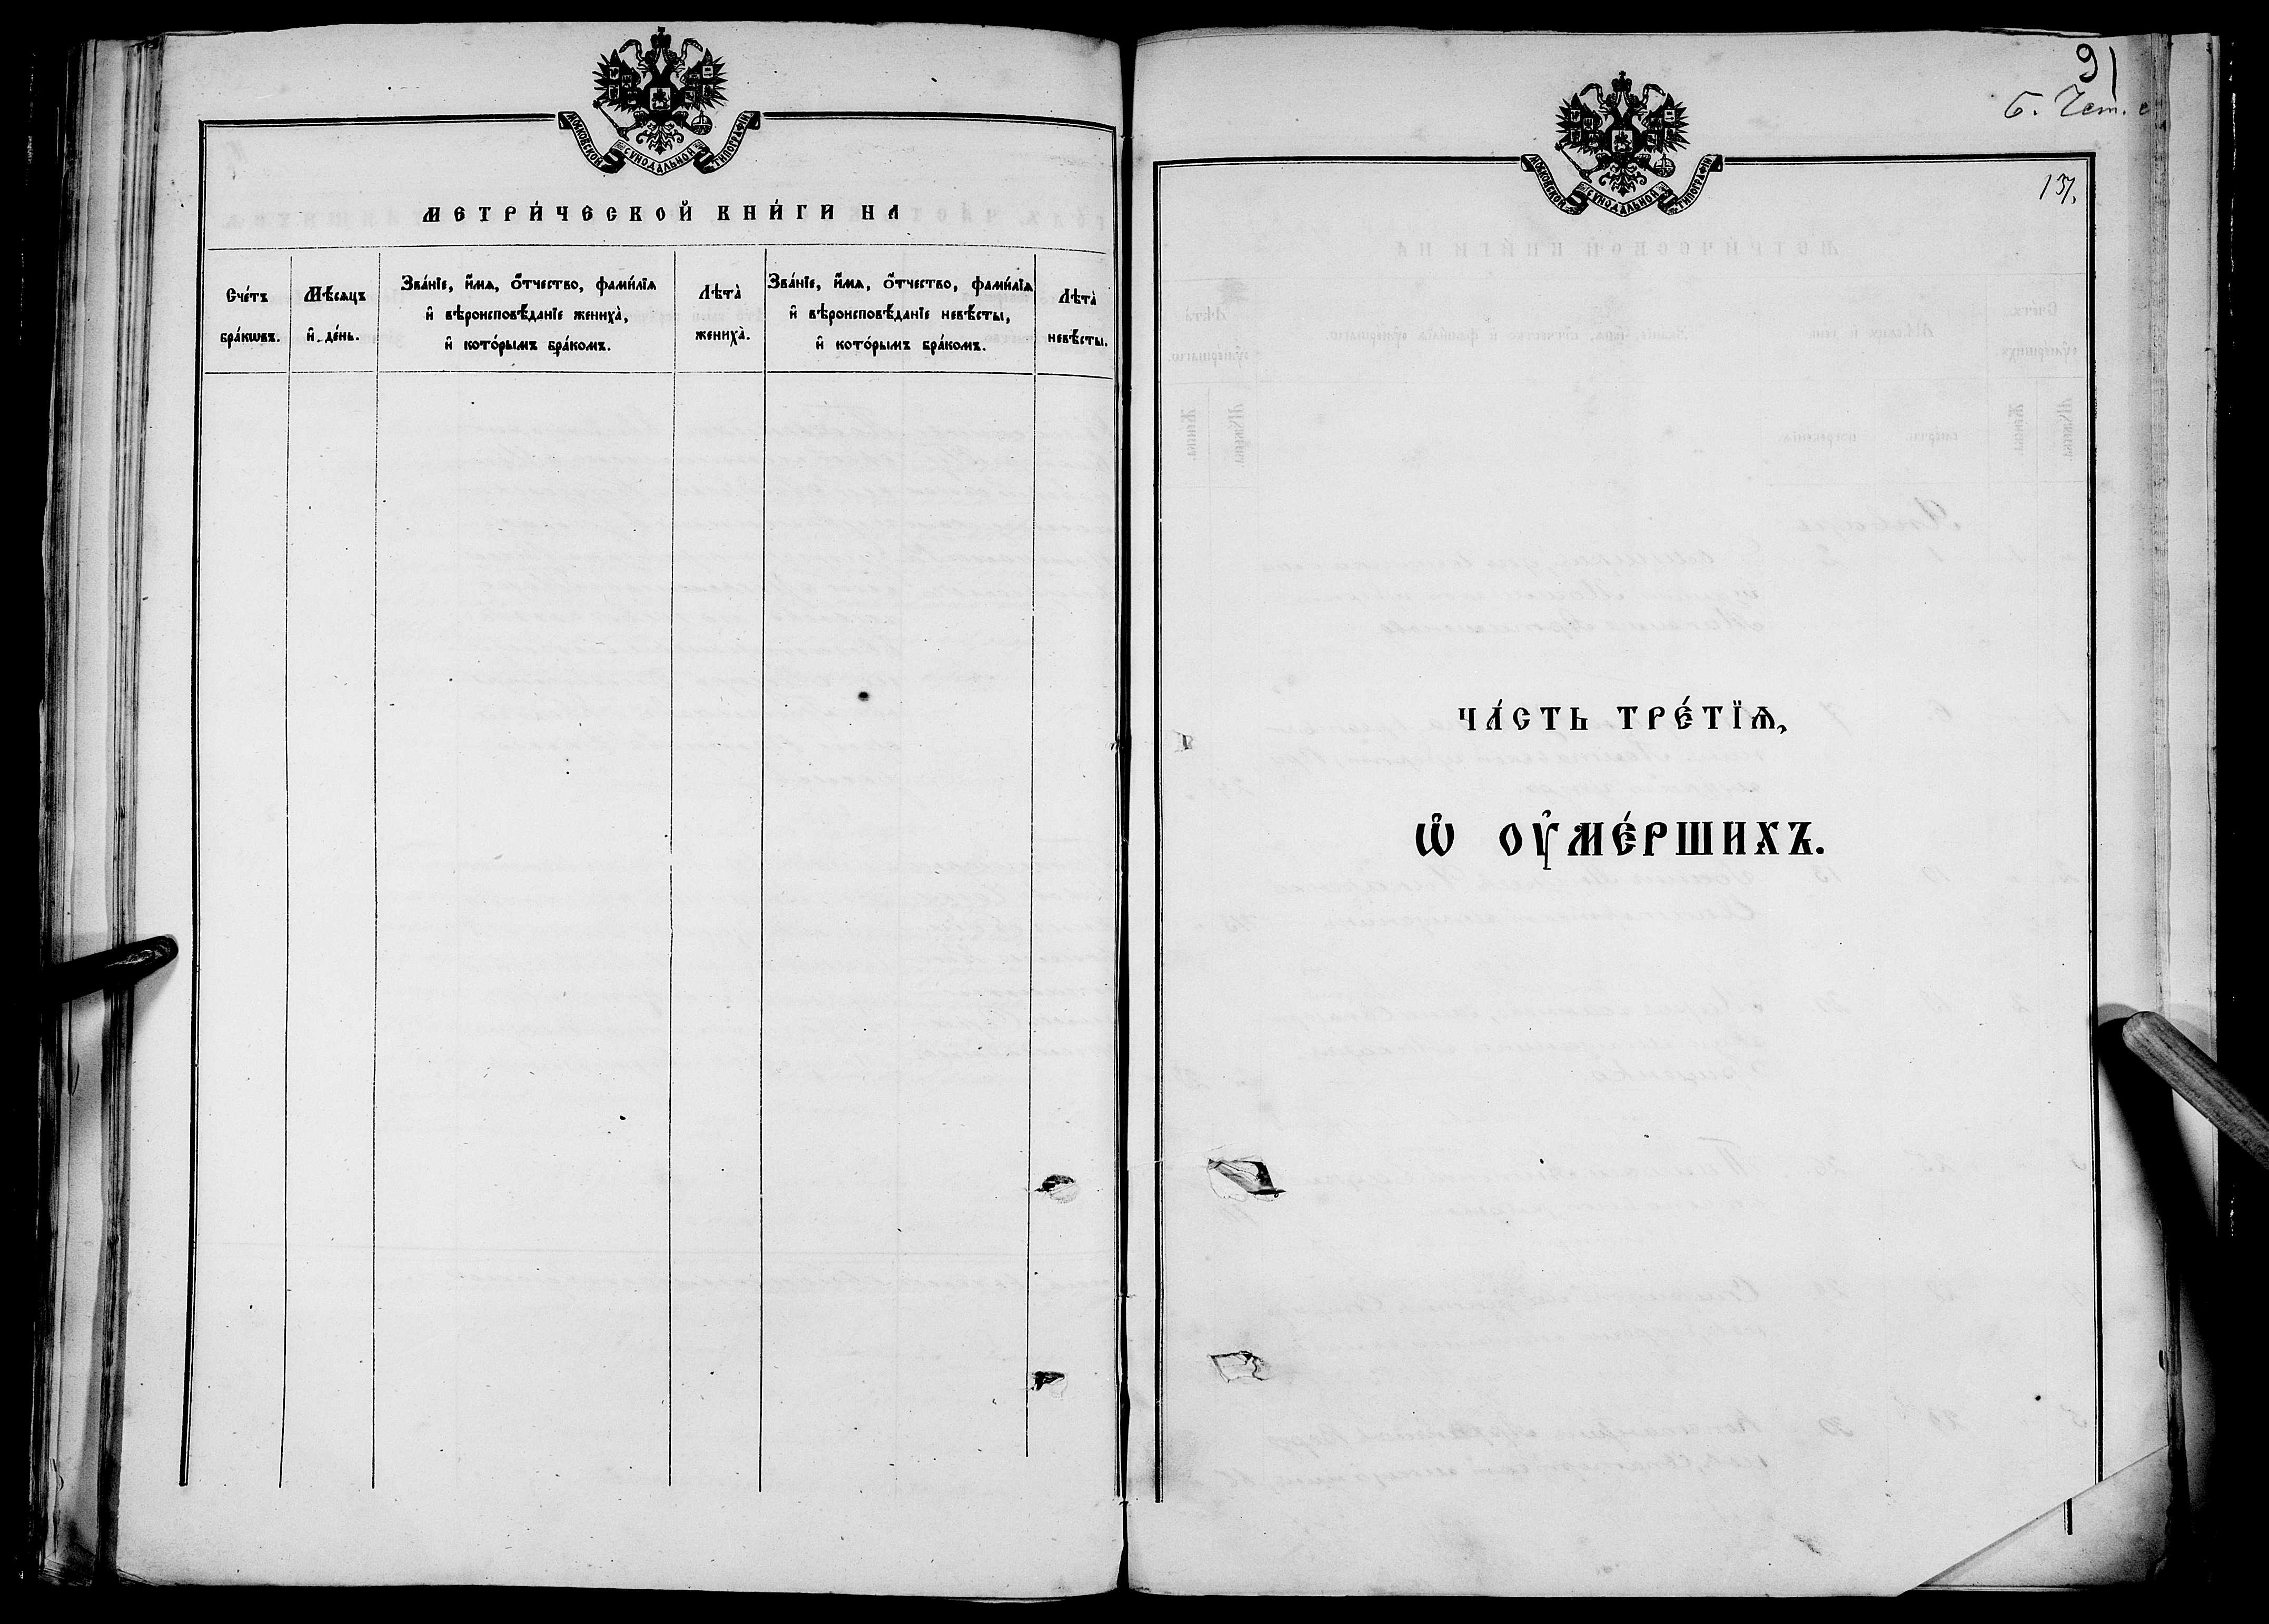 МОСКОВСКОЙ СѴНОДАЛЬНОЙ ТИПОГРАФІИ
МЕТРИ́ЧЕСКОЙ КНИ́ГИ НА
Сче́тъ
бра́кѡвъ.
Мѣ́сѧцъ
и҆ де́нь.
Зва́нїе, и҆́мѧ, ѻ҆́тчество, фами́лїѧ
и҆ вѣроисповѣ́данїе жениха̀,
и҆ кото́рымъ бра́комъ.
Лѣта̀
жениха̀.
Зва́нїе, и҆́мѧ, ѻ҆́тчество, фами́лїѧ
и҆ вѣроисповѣ́данїе невѣ́сты,
и҆ кото́рымъ бра́комъ.
Лѣта̀
невѣ́сты.
91
137.
МОСКОВСКОЙ СѴНОДАЛЬНОЙ ТИПОГРАФІИ
ЧА́СТЬ ТРЕ́ТЇѦ,
Ѡ҆ ОУ҆МЕ́РШИХЪ.